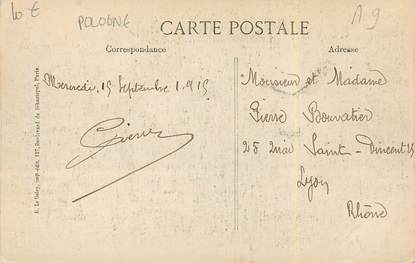 10 €
POLOGNE
A-9
CARTE POSTALE
Correspondance
Adresse
Mercredi, 15 Septembre 1.915
Pierre
Monsieur et Madame
Pierre Bouvatier
28 Quai Saint-Vincent 28
Lyon
Rhône
E. Le Deley, imp.-édit., 127, Boulevard de Sébastopol, Paris.